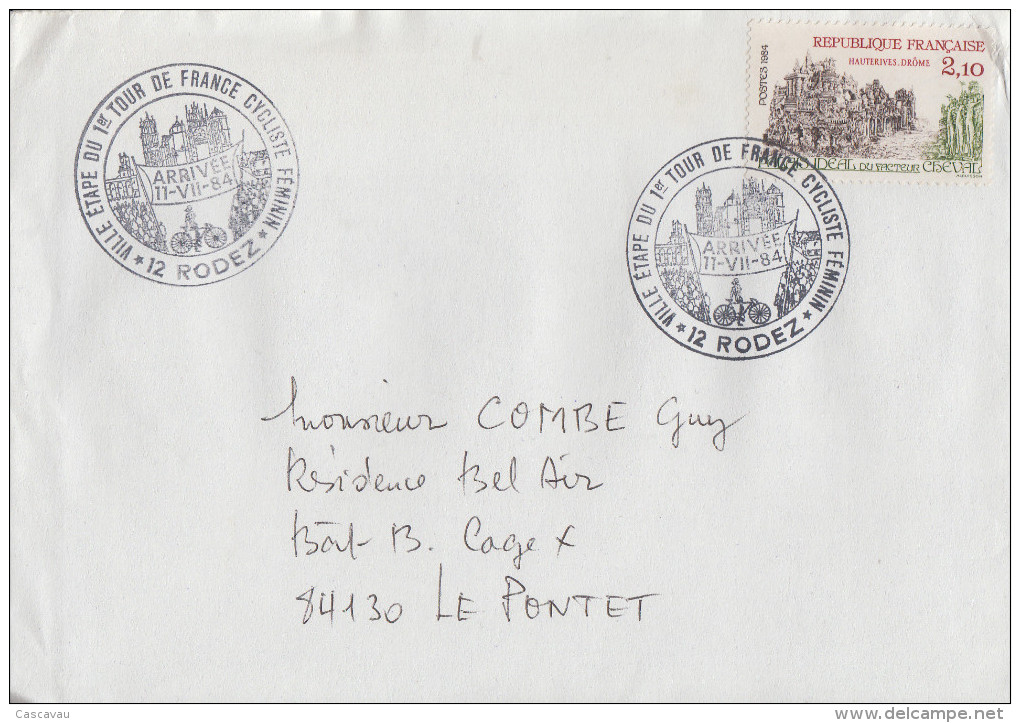 VILLE ÉTAPE DU 1er TOUR DE FRANCE CYCLISTE FÉMININ
ARRIVÉE
11-VII-84
* 12 RODEZ *
REPUBLIQUE FRANÇAISE
HAUTERIVES. DRÔME 2,10
POSTES 1984
IDEAL DU FACTEUR CHEVAL
VILLE ÉTAPE DU 1er TOUR DE FRANCE CYCLISTE FÉMININ
ARRIVÉE
11-VII-84
* 12 RODEZ *
Monsieur COMBE Guy
Résidence Bel Air
Bât B. Cage X
84130 LE PONTET
Cascavau
www.delcampe.net